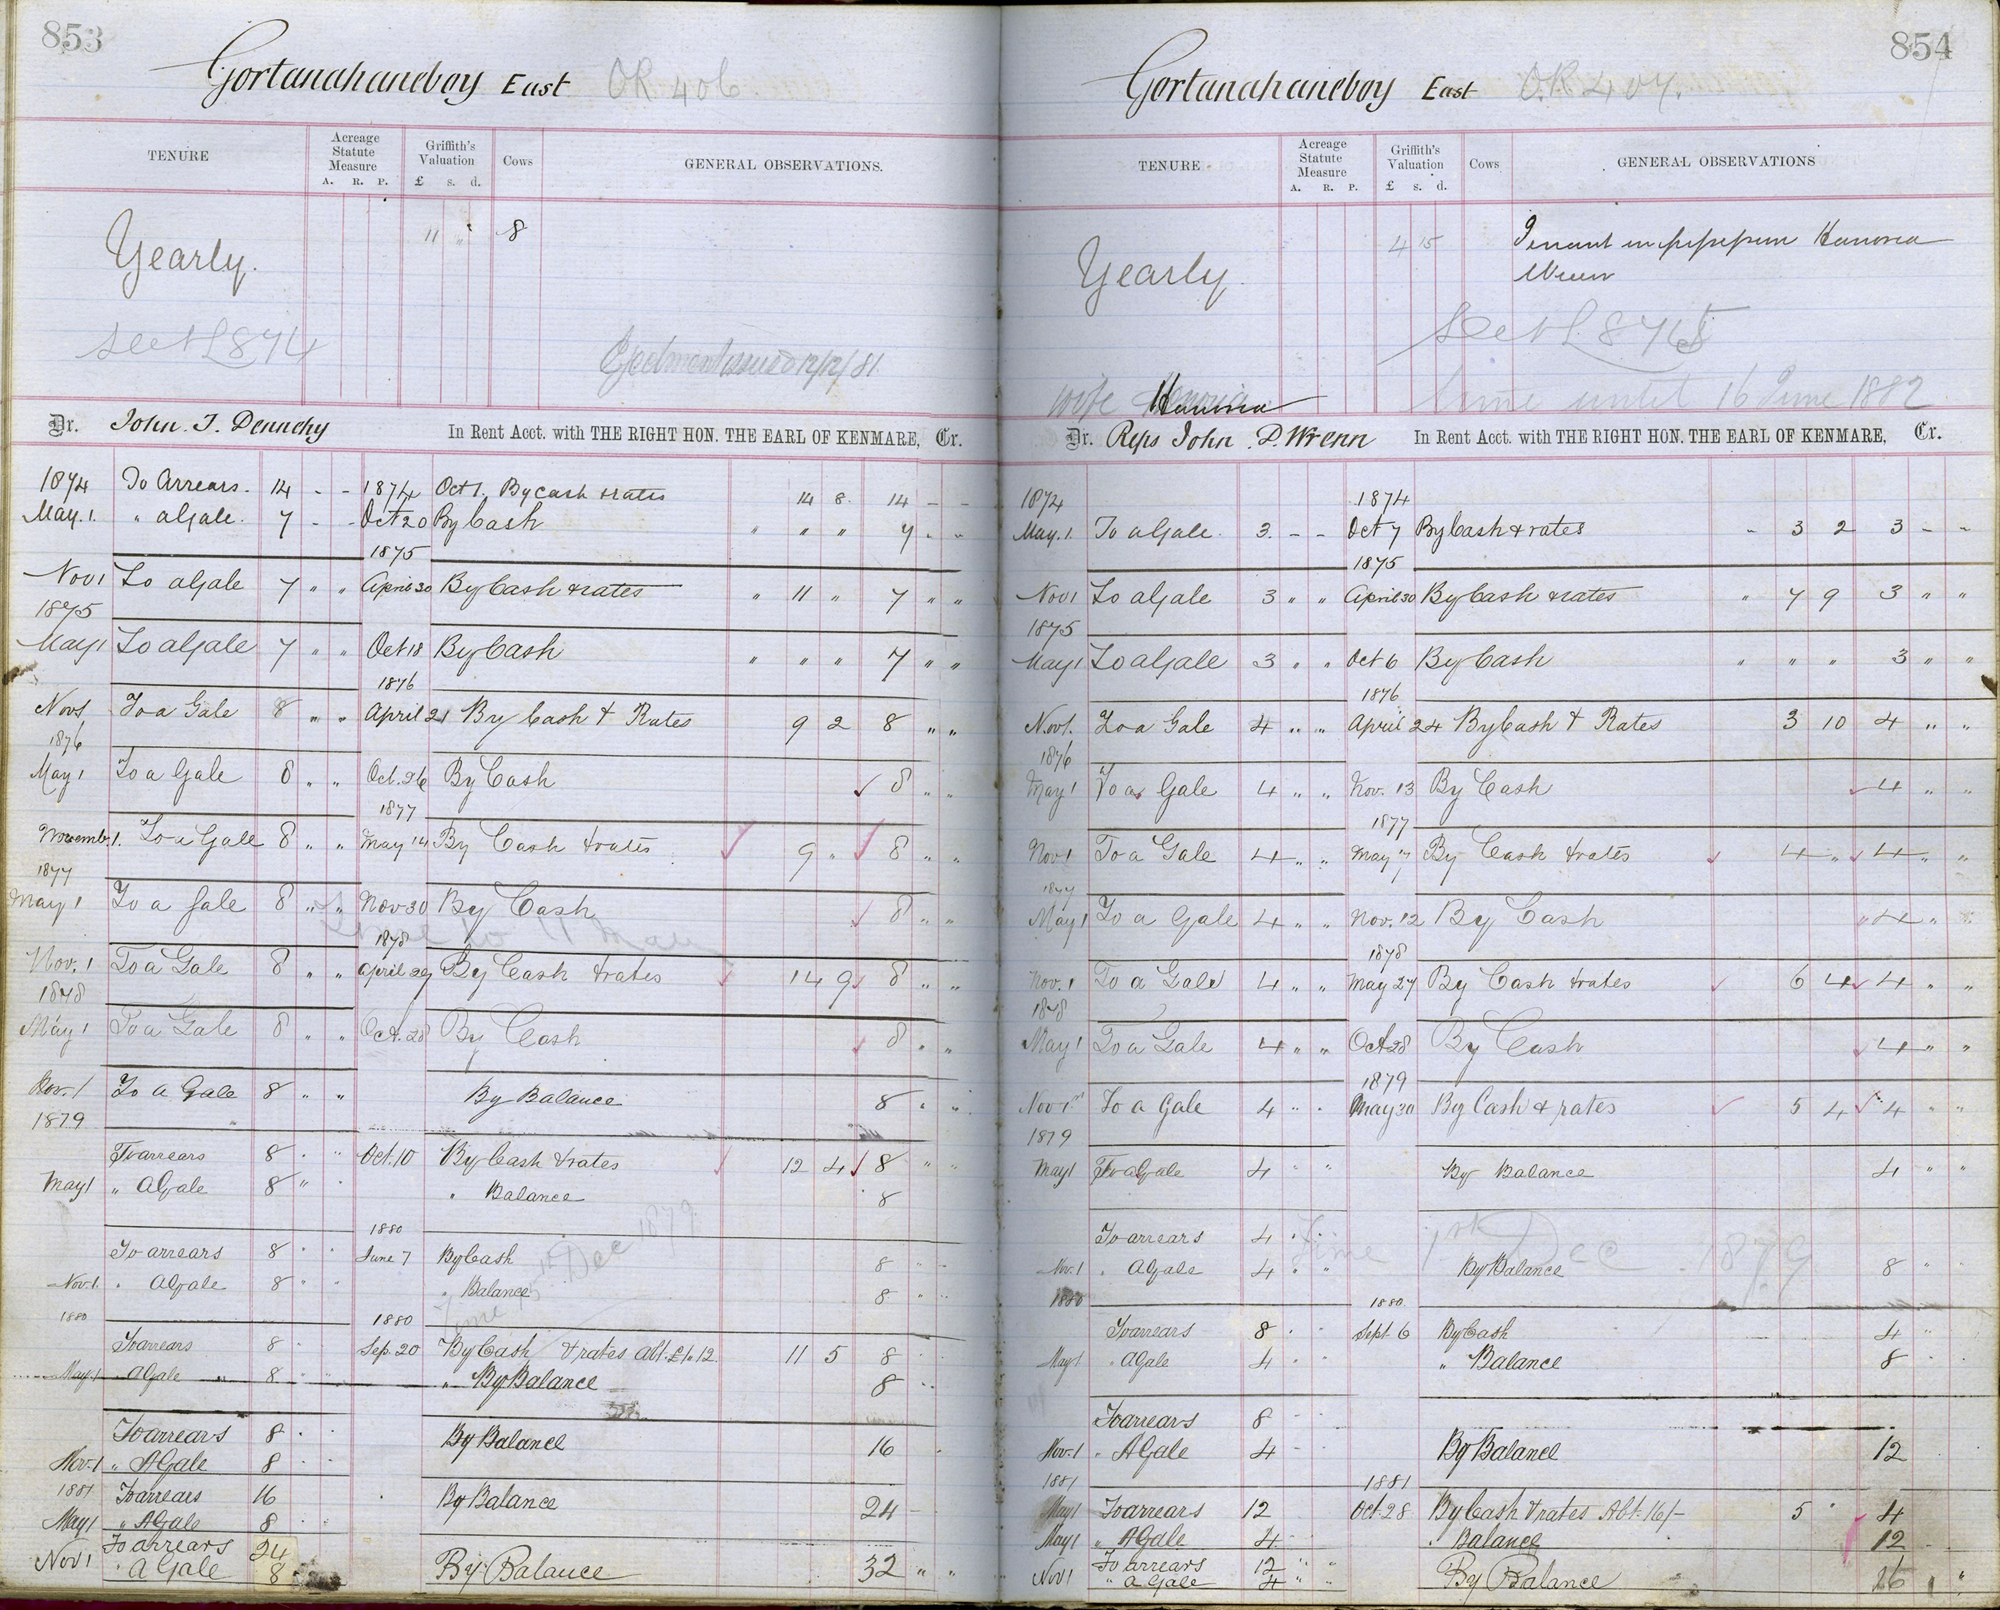 853
Gortanahaneboy East OR 406.
TENURE Acreage Statute Measure A. R. P. Griffith's Valuation £ s. d. Cows GENERAL OBSERVATIONS.
Yearly. 11 " 8
See L 874
Ejectment issued 12/12/81
Dr. John. T. Dennehy In Rent Acct. with THE RIGHT HON. THE EARL OF KENMARE, Cr.
1874 To Arrears. 14 - - 1874 Oct 1. By Cash & rates 14 8. 14 - -
May. 1. " a Gale. 7 - - Oct 20 By Cash " " " 7 " "
1875
Nov 1 To a Gale 7 " " April 30 By Cash & rates " 11 " 7 " "
1875
May 1 To a Gale 7 " " Oct 18 By Cash " " " 7 " "
1876
Nov 1 To a Gale 8 " " April 21 By Cash & Rates 9 2 8 " "
1876
May 1 To a Gale 8 " " Oct. 26 By Cash 8 " "
1877
Novemb. 1. To a Gale 8 " " May 14 By Cash & rates 9 " 8 " "
1877
May 1 To a Gale 8 " " Nov 30 By Cash 8 " "
1878
Nov. 1 To a Gale 8 " " April 29 By Cash & rates 14 9 8 " "
1878
May 1 To a Gale 8 " " Oct. 28 By Cash 8 " "
Nov. 1 To a Gale 8 " " By Balance 8 " "
1879
To arrears 8 " " Oct. 10 By Cash & rates 12 4 8 " "
May 1 " A Gale 8 " " " Balance 8
1880
To arrears 8 " " June 7 By Cash 8 " "
Nov. 1. " A Gale 8 " " " Balance 8 " "
Time Dec 1879
1880 1880
To arrears 8 " Sep. 20 By Cash & rates Abt. £1. 12. 11 5 8 " "
May 1 " A Gale " 8 " " " By Balance 8 " "
To arrears 8 " " By Balance 16
Nov. 1 " A Gale 8 " "
1881 To arrears 16 By Balance 24 -
May 1 " A Gale 8 " "
To arrears 24
Nov 1 " A Gale 8 By Balance 32 " "
854
Gortanahaneboy East O.R 407.
TENURE Acreage Statute Measure A. R. P. Griffith's Valuation £ s. d. Cows GENERAL OBSERVATIONS
Yearly. 4 15 Tenant in possession Hanorea
Wrenn
See L 875
wife Hanorea Time until 16 June 1882
Dr. Reps John. D. Wrenn In Rent Acct. with THE RIGHT HON. THE EARL OF KENMARE, Cr.
1874 1874
May. 1. To a Gale. 3. - - Oct 7 By Cash & rates " 3 2 3 - -
1875
Nov 1 To a Gale 3 " " April 30 By Cash & rates " 7 9 3 " "
1875
May 1 To a Gale 3 " " Oct 6 By Cash " " " 3 " "
1876
Nov 1. To a Gale 4 " " April 24 By Cash & Rates 3 10 4 " "
1876
May 1 To a Gale 4 " " Nov. 13 By Cash 4 " "
1877
Nov 1 To a Gale 4 " " May 7 By Cash & rates 4 " 4 " "
1877
May 1 To a Gale 4 " " Nov. 12 By Cash 4 " "
1878
Nov. 1 To a Gale 4 " " May 27 By Cash & rates 6 4 4 " "
1878
May 1 To a Gale 4 " " Oct 28 By Cash 4 " "
1879
Nov 1st To a Gale 4 " " May 30 By Cash & rates 5 4 4 " "
1879
May 1 To a Gale 4 " " By Balance 4 " "
To arrears 4 " Time 1st Dec 1879
Nov. 1 " A Gale 4 " " By Balance 8 " "
1880 1880
To arrears 8 " " Sept. 6 By Cash 4 "
May 1 " A Gale 4 " " " Balance 8 "
To arrears 8 " "
Nov. 1 " A Gale 4 " By Balance 12
1881 1881
May 1 To arrears 12 Oct. 28 By Cash & rates Abt. 16/- 5 " 4
May 1 " A Gale 4 " Balance 12
To arrears 12 " "
Nov 1 " a Gale 4 " " By Balance 16 "